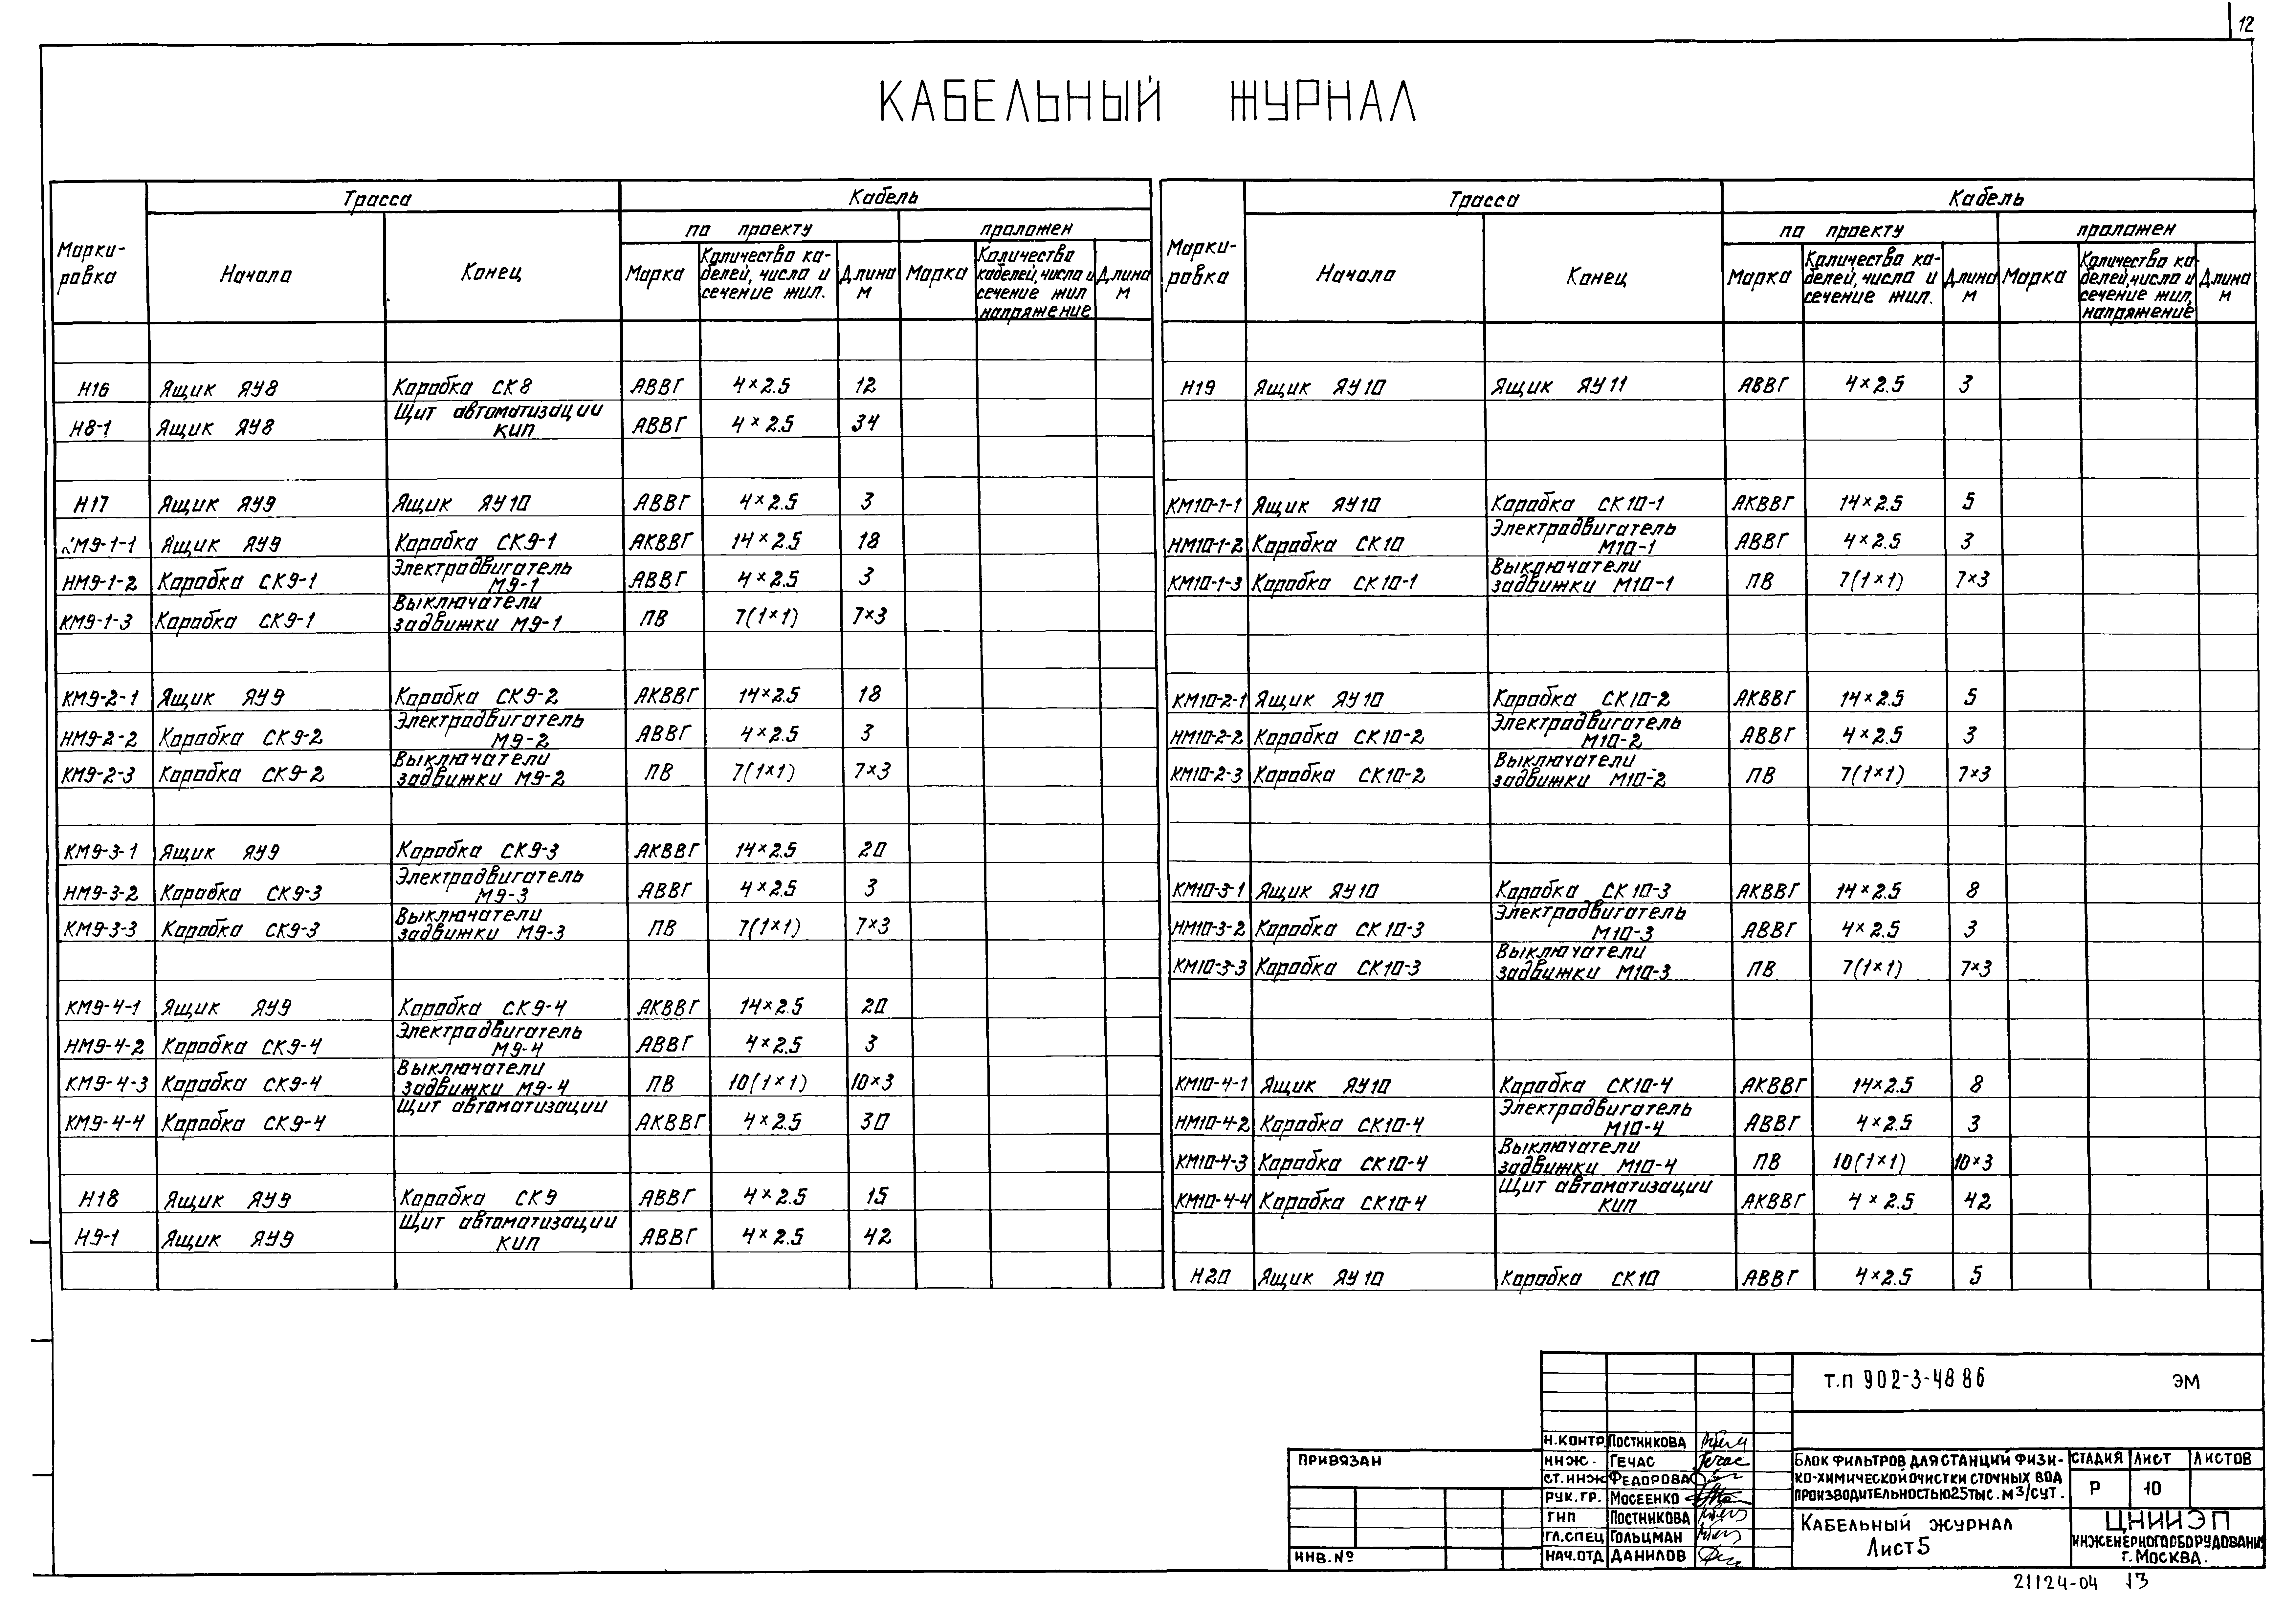 12
КАБЕЛЬНЫЙ ЖУРНАЛ
Марки-
ровка
Трасса
Кабель
Начало
Конец
по проекту
проложен
Марка
Количество ка-
белей, число и
сечение жил.
Длина
м
Марка
Количество
кабелей, число и
сечение жил
напряжение
Длина
м
Н16 Ящик ЯУ8 Коробка СК8 АВВГ 4×2.5 12
Н8-1 Ящик ЯУ8 Щит автоматизации КИП АВВГ 4×2.5 34
Н17 Ящик ЯУ9 Ящик ЯУ10 АВВГ 4×2.5 3
КМ9-1-1 Ящик ЯУ9 Коробка СК9-1 АКВВГ 14×2.5 18
НМ9-1-2 Коробка СК9-1 Электродвигатель М9-1 АВВГ 4×2.5 3
КМ9-1-3 Коробка СК9-1 Выключатели задвижки М9-1 ПВ 7(1×1) 7×3
КМ9-2-1 Ящик ЯУ9 Коробка СК9-2 АКВВГ 14×2.5 18
НМ9-2-2 Коробка СК9-2 Электродвигатель М9-2 АВВГ 4×2.5 3
КМ9-2-3 Коробка СК9-2 Выключатели задвижки М9-2 ПВ 7(1×1) 7×3
КМ9-3-1 Ящик ЯУ9 Коробка СК9-3 АКВВГ 14×2.5 20
НМ9-3-2 Коробка СК9-3 Электродвигатель М9-3 АВВГ 4×2.5 3
КМ9-3-3 Коробка СК9-3 Выключатели задвижки М9-3 ПВ 7(1×1) 7×3
КМ9-4-1 Ящик ЯУ9 Коробка СК9-4 АКВВГ 14×2.5 20
НМ9-4-2 Коробка СК9-4 Электродвигатель М9-4 АВВГ 4×2.5 3
КМ9-4-3 Коробка СК9-4 Выключатели задвижки М9-4 ПВ 10(1×1) 10×3
КМ9-4-4 Коробка СК9-4 Щит автоматизации АКВВГ 4×2.5 30
Н18 Ящик ЯУ9 Коробка СК9 АВВГ 4×2.5 15
Н9-1 Ящик ЯУ9 Щит автоматизации КИП АВВГ 4×2.5 42
Марки-
ровка
Трасса
Кабель
Начало
Конец
по проекту
проложен
Марка
Количество ка-
белей, число и
сечение жил.
Длина
м
Марка
Количество ка-
белей, число и
сечение жил,
напряжение
Длина
м
Н19 Ящик ЯУ10 Ящик ЯУ11 АВВГ 4×2.5 3
КМ10-1-1 Ящик ЯУ10 Коробка СК10-1 АКВВГ 14×2.5 5
НМ10-1-2 Коробка СК10 Электродвигатель М10-1 АВВГ 4×2.5 3
КМ10-1-3 Коробка СК10-1 Выключатели задвижки М10-1 ПВ 7(1×1) 7×3
КМ10-2-1 Ящик ЯУ10 Коробка СК10-2 АКВВГ 14×2.5 5
НМ10-2-2 Коробка СК10-2 Электродвигатель М10-2 АВВГ 4×2.5 3
КМ10-2-3 Коробка СК10-2 Выключатели задвижки М10-2 ПВ 7(1×1) 7×3
КМ10-3-1 Ящик ЯУ10 Коробка СК10-3 АКВВГ 14×2.5 8
НМ10-3-2 Коробка СК10-3 Электродвигатель М10-3 АВВГ 4×2.5 3
КМ10-3-3 Коробка СК10-3 Выключатели задвижки М10-3 ПВ 7(1×1) 7×3
КМ10-4-1 Ящик ЯУ10 Коробка СК10-4 АКВВГ 14×2.5 8
НМ10-4-2 Коробка СК10-4 Электродвигатель М10-4 АВВГ 4×2.5 3
КМ10-4-3 Коробка СК10-4 Выключатели задвижки М10-4 ПВ 10(1×1) 10×3
КМ10-4-4 Коробка СК10-4 Щит автоматизации КИП АКВВГ 4×2.5 42
Н20 Ящик ЯУ10 Коробка СК10 АВВГ 4×2.5 5
ПРИВЯЗАН
ИНВ.№
Н.КОНТР. ПОСТНИКОВА
ИНЖ. ГЕЧАС
СТ.ИНЖ ФЕДОРОВА
РУК.ГР. МОСЕЕНКО
ГИП ПОСТНИКОВА
ГЛ.СПЕЦ ГОЛЬЦМАН
НАЧ.ОТД ДАНИЛОВ
Т.П 902-3-48 86 ЭМ
БЛОК ФИЛЬТРОВ ДЛЯ СТАНЦИЙ ФИЗИ-
КО-ХИМИЧЕСКОЙ ОЧИСТКИ СТОЧНЫХ ВОД
ПРОИЗВОДИТЕЛЬНОСТЬЮ 25 ТЫС. М3/СУТ.
СТАДИЯ ЛИСТ ЛИСТОВ
Р 10
КАБЕЛЬНЫЙ ЖУРНАЛ
Лист 5
ЦНИИЭП
ИНЖЕНЕРНОГО ОБОРУДОВАНИЯ
Г. МОСКВА.
21124-04 13